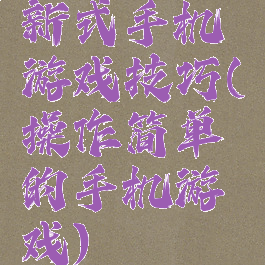 新式手机
游戏技巧(
操作简单
的手机游
戏)